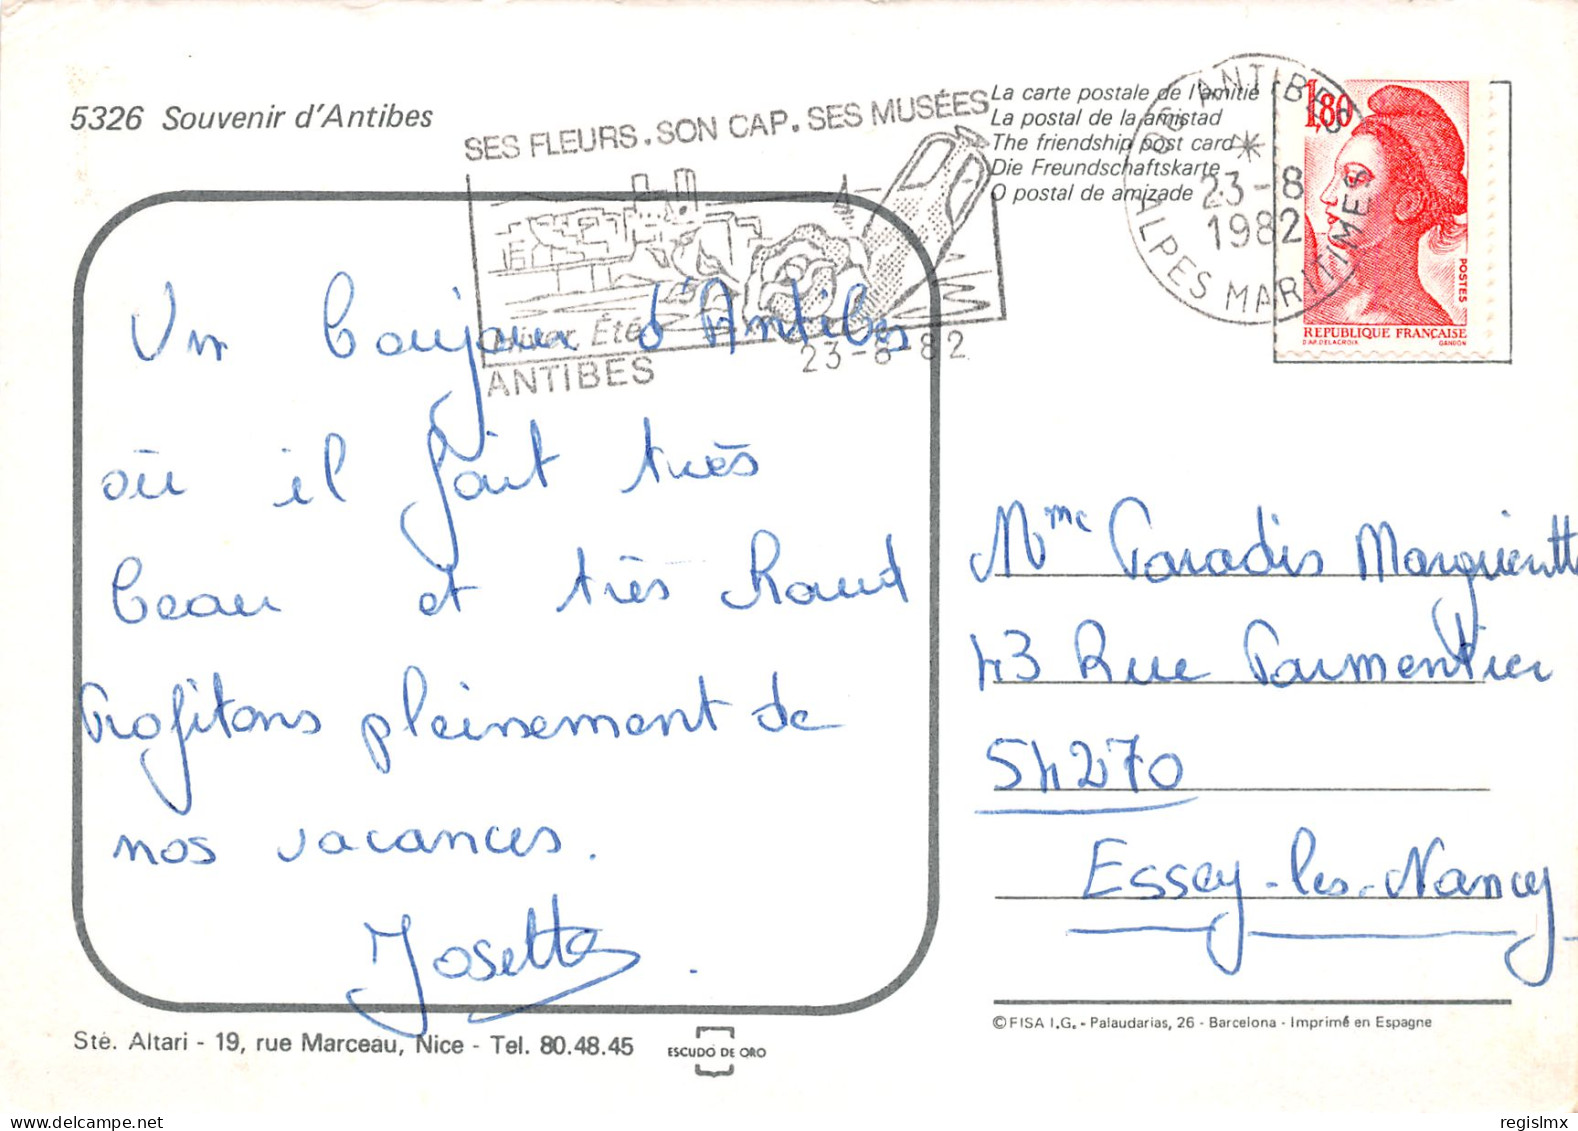 5326 Souvenir d'Antibes
SES FLEURS. SON CAP. SES MUSÉES
Hiver. Été
ANTIBES
23-8-82
La carte postale de l'amitié
La postal de la amistad
The friendship post card
Die Freundschaftskarte
O postal de amizade
06 ANTIBES
23-8
1982
ALPES MARITIMES
1,80
POSTES
REPUBLIQUE FRANÇAISE
D'AP. DELACROIX GANDON
Un Bonjour d'Antibes
où il fait très
beau et très chaud
Profitons pleinement de
nos vacances.
Josette
Mme Paradis Marguerite
43 Rue Parmentier
54270
Essey-les-Nancy
© FISA I.G. - Palaudarias, 26 - Barcelona - Imprimé en Espagne
Sté. Altari - 19, rue Marceau, Nice - Tel. 80.48.45
ESCUDO DE ORO
regislmx